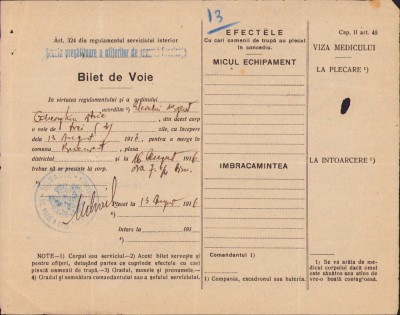 Art. 324 din regulamentul serviciului interior
Școala pregătitoare a ofițerilor de
Bilet de Voie
In virtutea regulamentului și a ordinului
acordăm ²)
din acest corp
o voie de trei zile, cu începere
dela 13 August 1916 pentru a merge în
comuna plasa
districtul și la 16 August 1916
trebui să se presinte la corp. ora 7
Plecat la 13 August 1916
Intors la 191
⁴)
NOTĂ:—1) Corpul sau serviciul— 2) Acest bilet servește și
pentru ofițeri, detașând partea ce cuprinde efectele cu cari
pleacă oamenii de trupă.— 3) Gradul, numele și pronumele.—
4) Gradul și semnătura comandantului sau a șefului serviciului.
13
EFECTELE
Cu cari oamenii de trupă au plecat
în concediu.
MICUL ECHIPAMENT
IMBRACAMINTEA
Comandantul 1)
1) Compania, escadronul sau bateria.
Cap. II art. 46
VIZA MEDICULUI
LA PLECARE ¹)
LA INTOARCERE ¹)
1) Se va arăta de me-
dicul corpului dacă omul
este sănătos sau atins de
vre-o boală contagioasă.